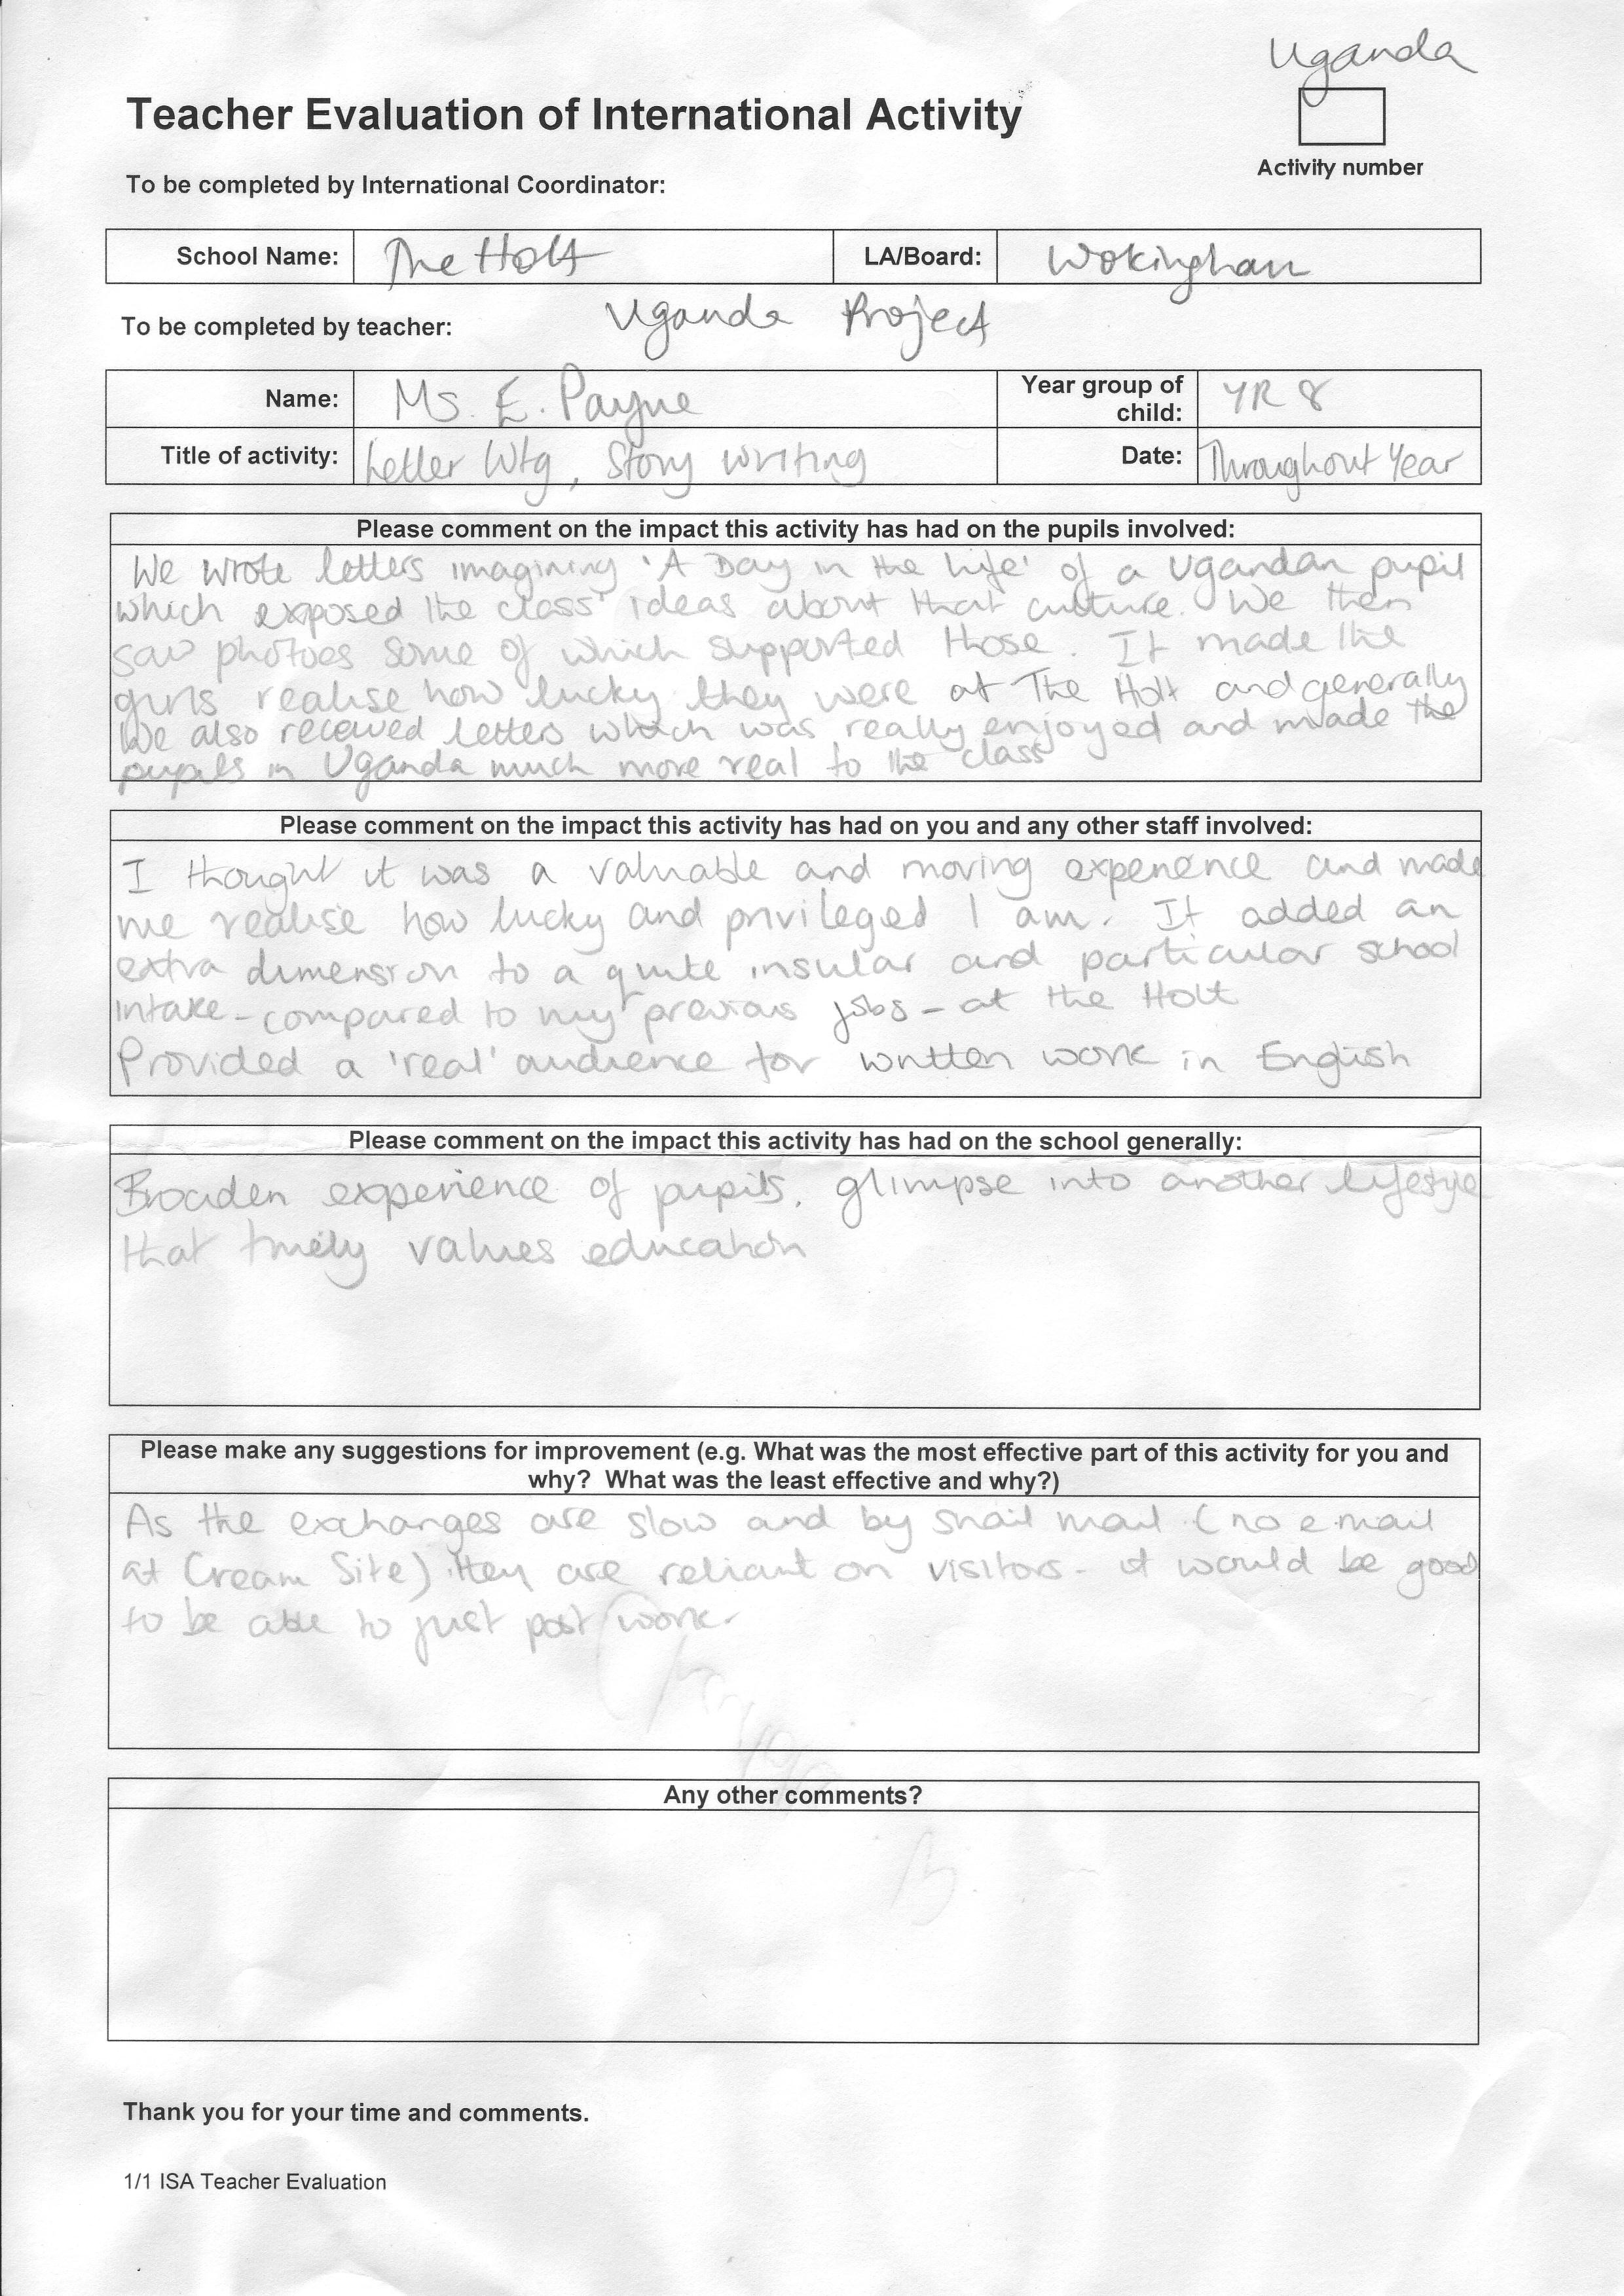 Uganda
Teacher Evaluation of International Activity
Activity number
To be completed by International Coordinator:
School Name: The Holt LA/Board: Wokingham
To be completed by teacher: Uganda Project
Name: Ms. E. Payne Year group of child: YR 8
Title of activity: Letter Wtg, Story writing Date: Throughout Year
Please comment on the impact this activity has had on the pupils involved:
We wrote letters imagining 'A Day in the life' of a Ugandan pupil
which exposed the class' ideas about that culture. We then
saw photoes some of which supported those. It made the
girls realise how lucky they were at The Holt and generally
We also received letters which was really enjoyed and made the
pupils in Uganda much more real to the class
Please comment on the impact this activity has had on you and any other staff involved:
I thought it was a valuable and moving experience and made
me realise how lucky and privileged I am. It added an
extra dimension to a quite insular and particular school
intake - compared to my previous jobs - at the Holt
Provided a 'real' audience for written work in English
Please comment on the impact this activity has had on the school generally:
Broaden experience of pupils, glimpse into another lifestye
that values education
Please make any suggestions for improvement (e.g. What was the most effective part of this activity for you and
why? What was the least effective and why?)
As the exchanges are slow and by snail mail (no e.mail
at Cream Site) they are reliant on visitors - it would be good
to be able to just post work.
Any other comments?
Thank you for your time and comments.
1/1 ISA Teacher Evaluation